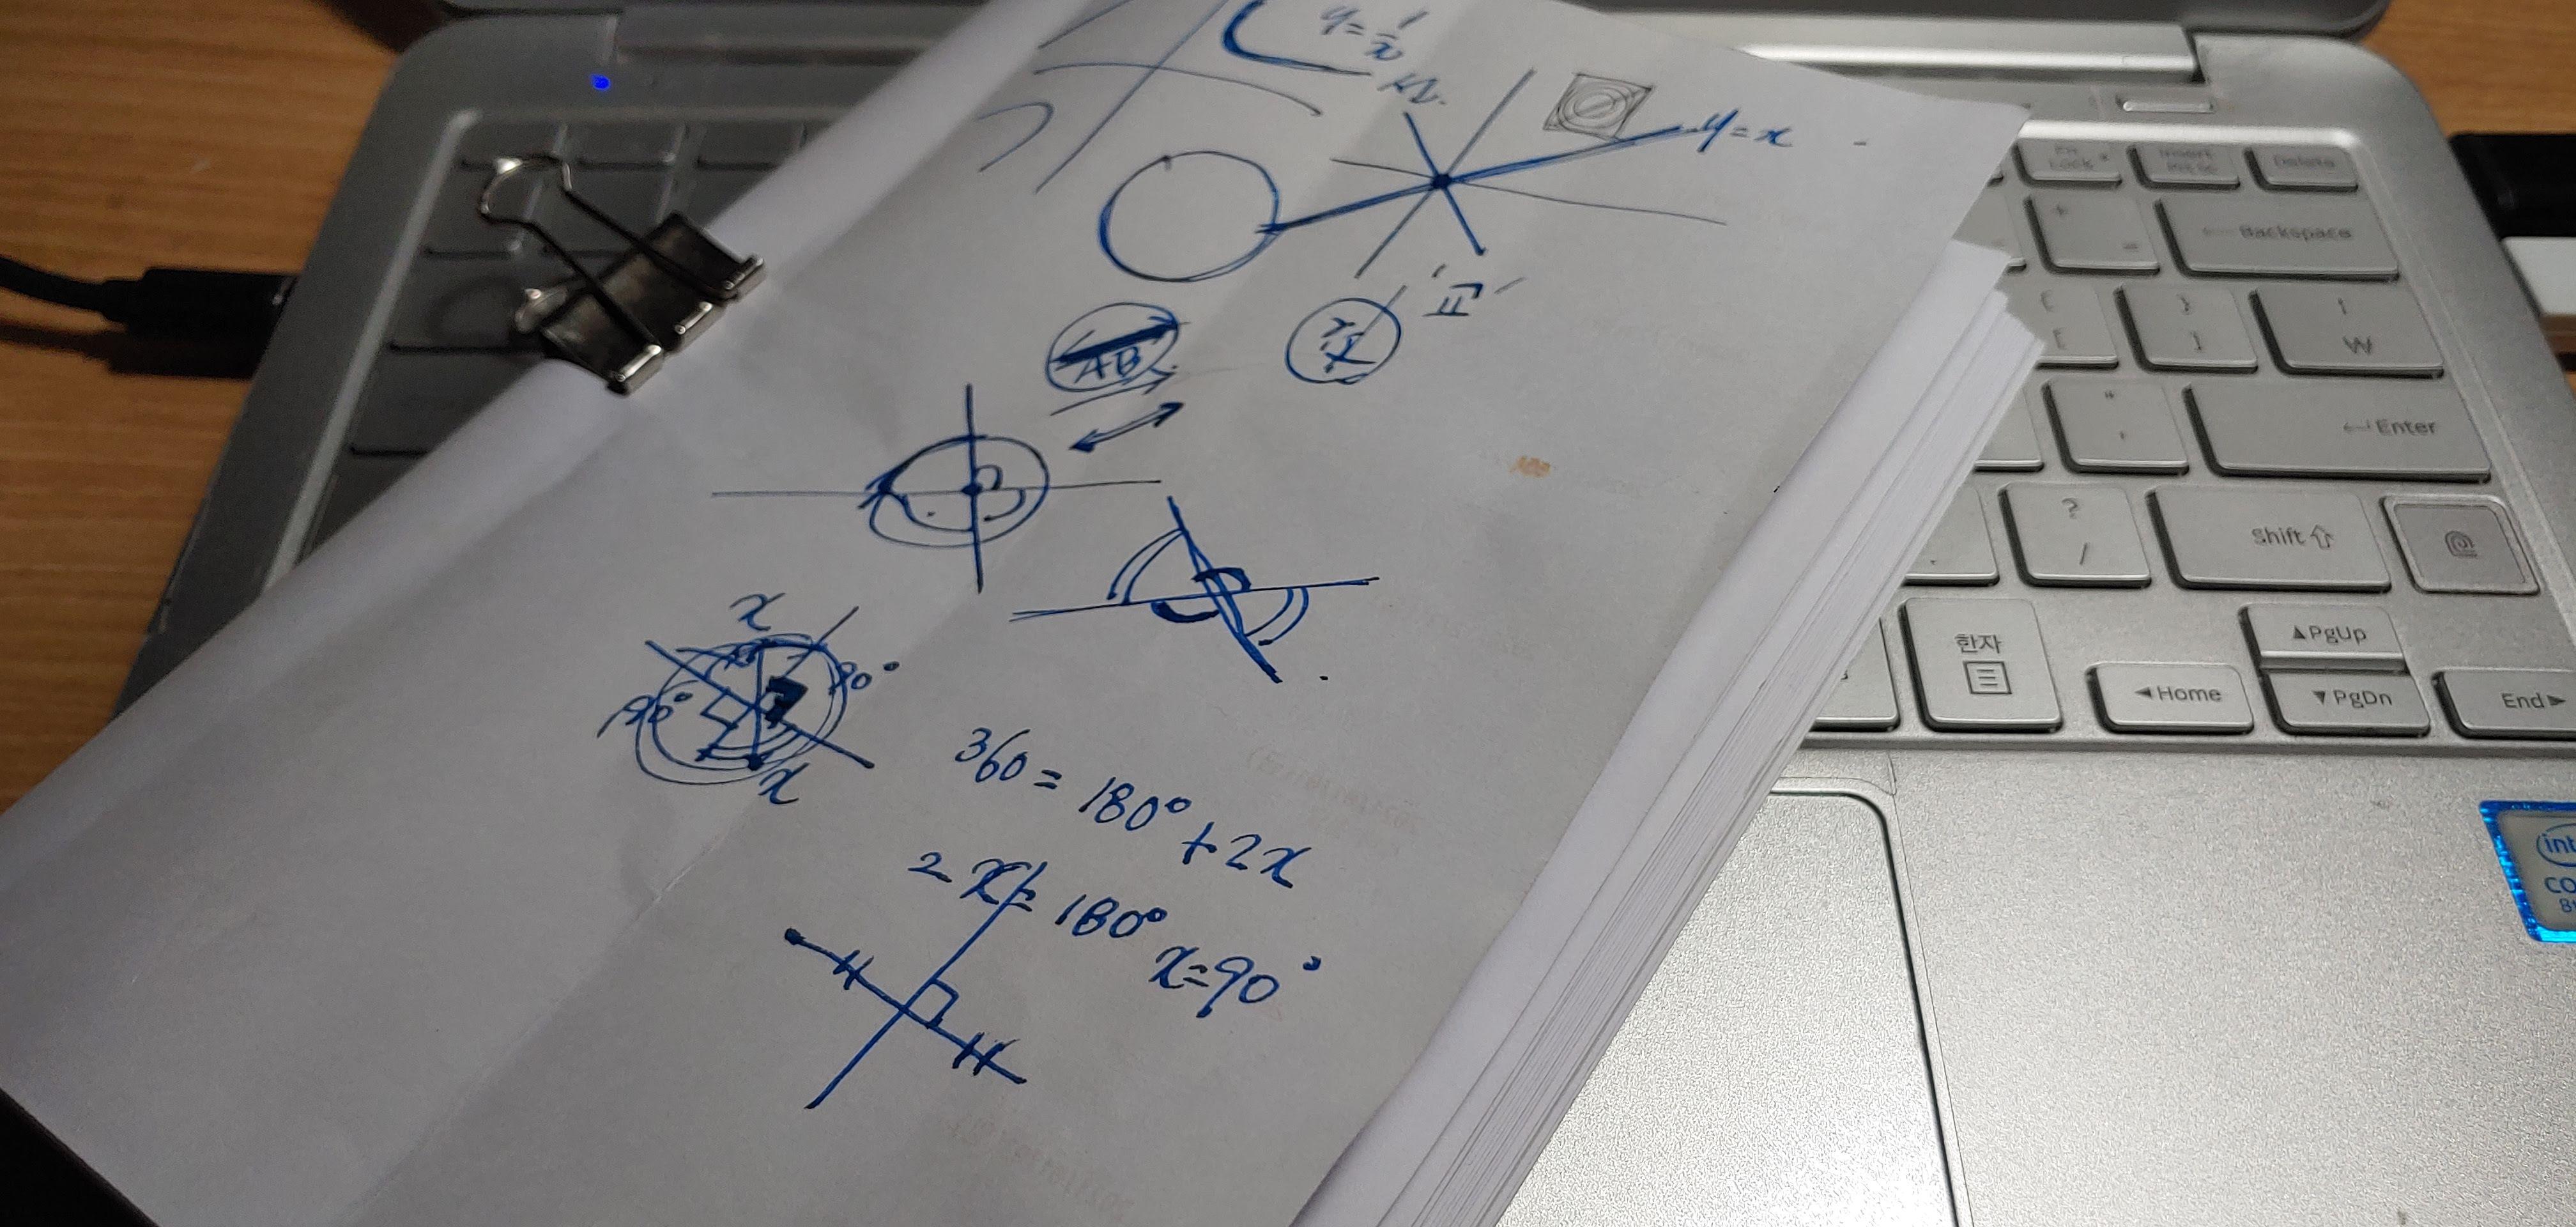 y = 1/x
y = x
AB
x
90°
90°
x
360 = 180° + 2x
2x = 180°
x = 90°
Insert
Delete
Backspace
W
Enter
?
/
Shift
한자
▲PgUp
◄Home
▼PgDn
End►